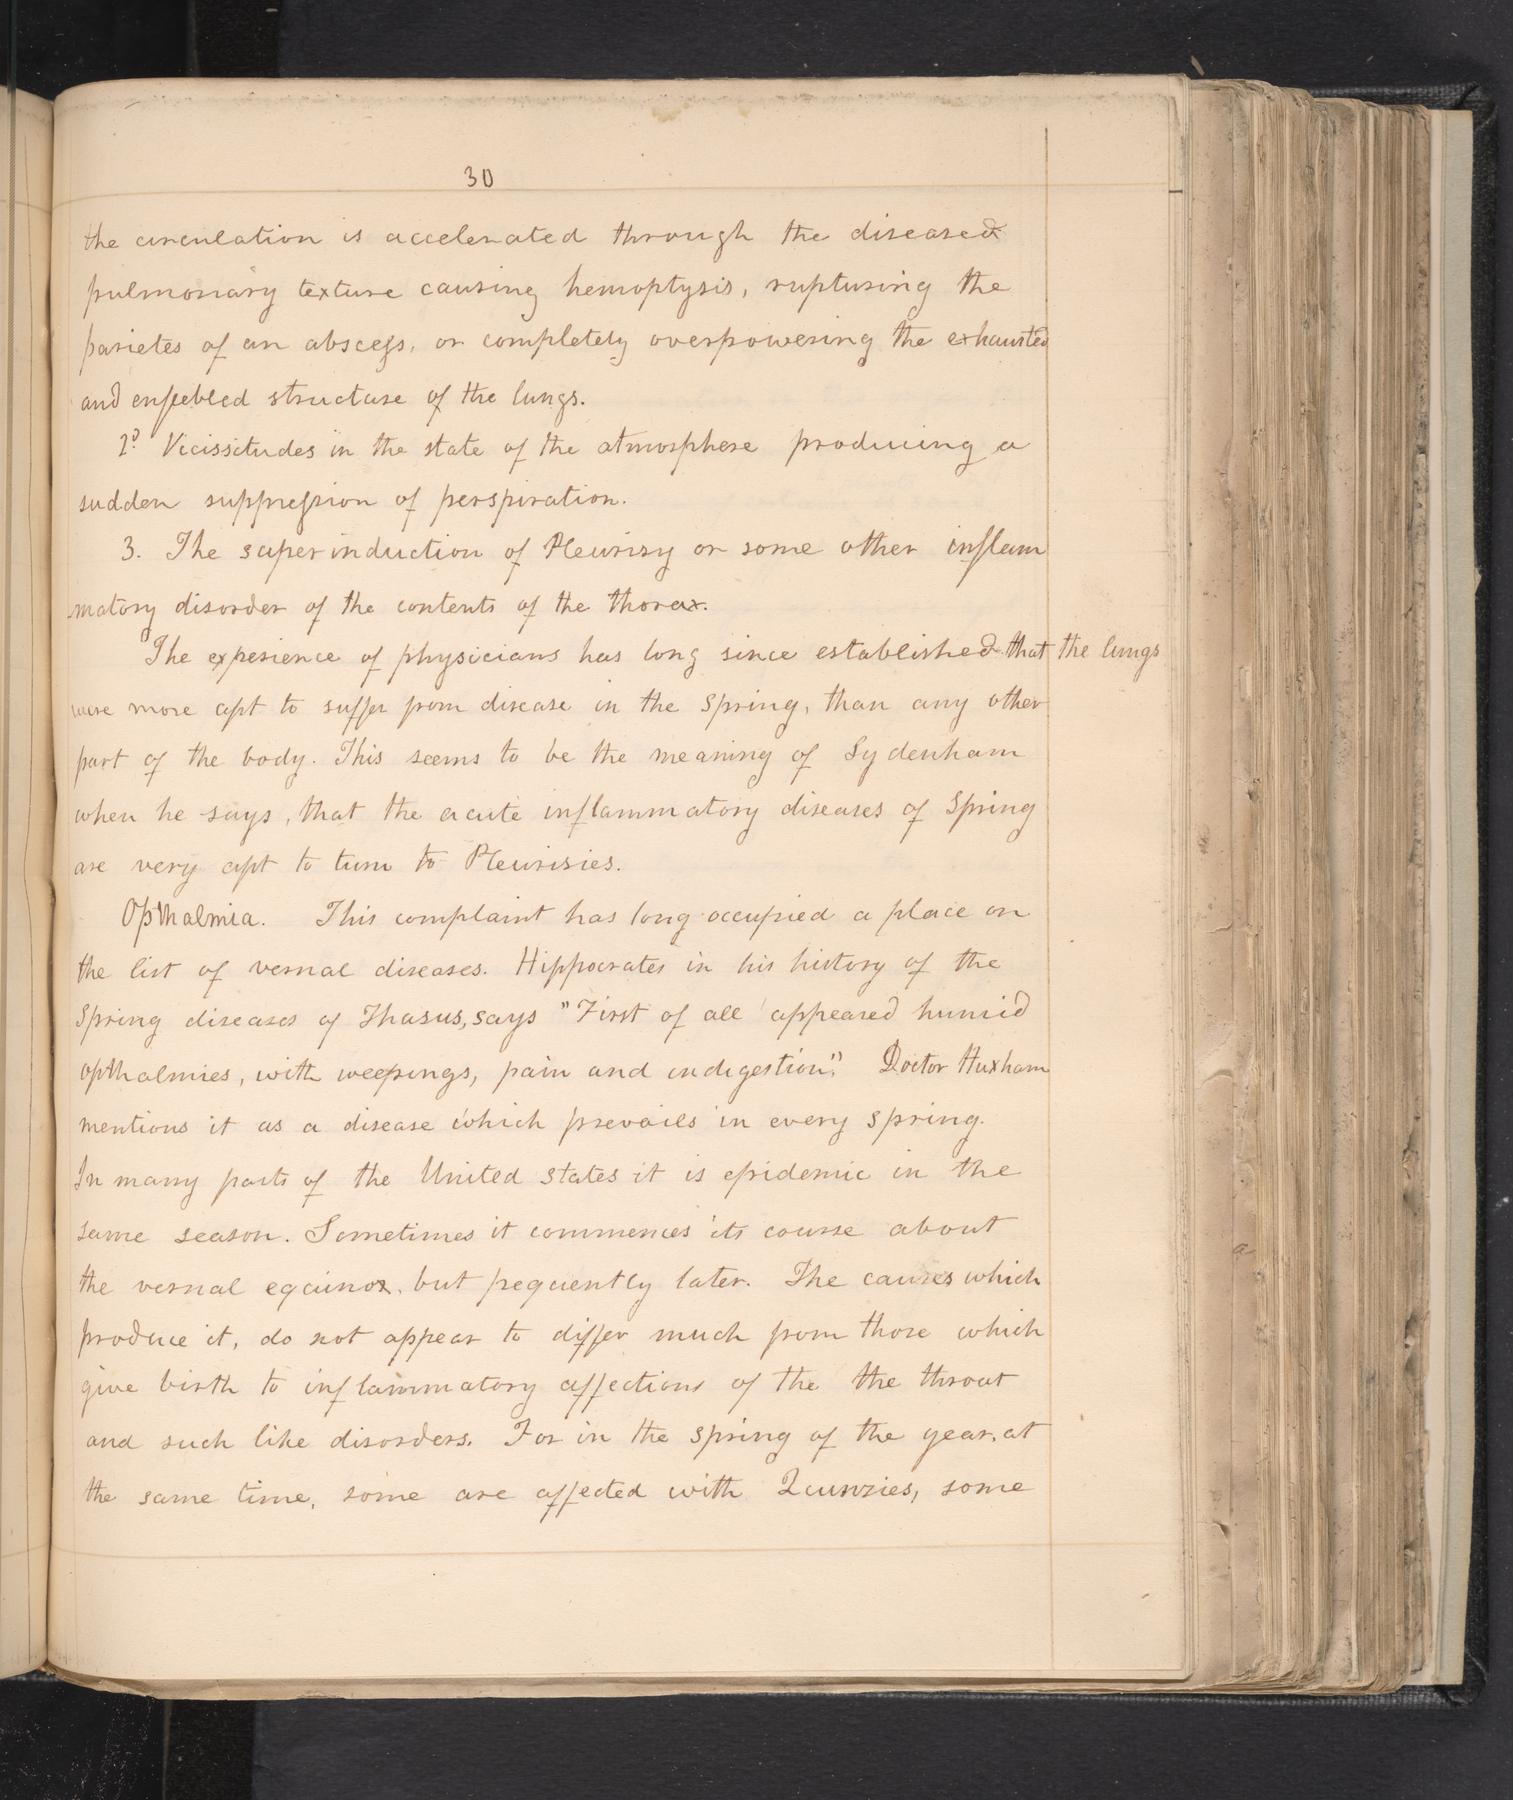 30
the circulation is accelerated through the diseased
pulmonary texture causing hemoptysis, rupturing the
parietes of an abscess, or completely overpowering the exhausted
and enfeebled structure of the lungs.
2d Vicissitudes in the state of the atmosphere producing a
sudden suppression of perspiration.
3. The superinduction of Pleurisy or some other inflam
matory disorder of the contents of the thorax.
The experience of physicians has long since established that the lungs
were more apt to suffer from disease in the spring, than any other
part of the body. This seems to be the meaning of Sydenham
when he says, that the acute inflammatory diseases of Spring
are very apt to turn to Pleurisies.
Opthalmia. This complaint has long occupied a place on
the list of vernal diseases. Hippocrates in his history of the
spring diseases of Thasus, says "First of all appeared humid
opthalmies, with weepings, pain and indigestion". Doctor Huxham
mentions it as a disease which prevails in every spring.
In many parts of the United States it is epidemic in the
same season. Sometimes it commences its course about
the vernal equinox, but frequently later. The causes which
produce it, do not appear to differ much from those which
give birth to inflammatory affections of the the throat
and such like disorders. For in the spring of the year, at
the same time, some are affected with Quinzies, some